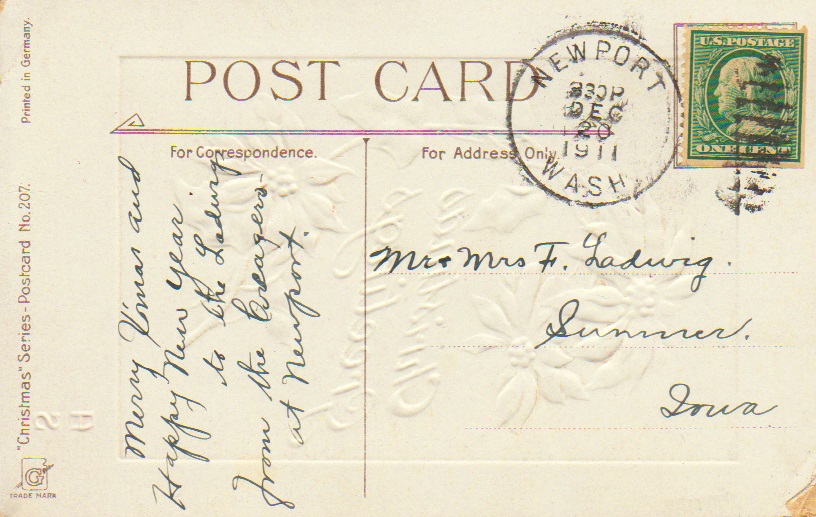 Printed in Germany.
"Christmas" Series - Postcard No. 207.
G
TRADE MARK
POST CARD
For Correspondence.
For Address Only.
NEWPORT
830P
DEC
20
1911
WASH
U.S. POSTAGE
ONE CENT
Merry Xmas and
Happy New Year
to the Ladwigs
from the
at Newport.
Mr + Mrs F. Ladwig.
Sumner.
Iowa